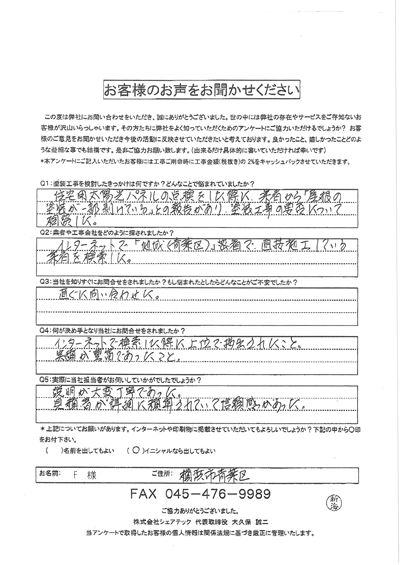 お客様のお声をお聞かせください
この度は弊社にお問い合わせをいただき、誠にありがとうございました。世の中には弊社の存在やサービスをご存知ないお
客様が沢山いらっしゃいます。その方たちに弊社をよく知っていただくためのアンケートにご協力いただけるでしょうか？ お客
様のご意見をお聞かせいただき今後の活動に反映させていただきたいと考えております。良かったこと、嬉しかったことどのよ
うな些細な事でも結構です。是非ご協力お願い致します。（出来るだけ具体的に書いていただければ幸いです）
*本アンケートにご記入いただいたお客様には工事ご用命時に工事金額(税抜き)の2%をキャッシュバックさせていただきます。
Q1:塗装工事を検討したきっかけは何ですか？どんなことで悩まれていましたか？
住宅用太陽光パネルの点検をした際、業者から「屋根の
塗装が一部剥げている」との報告があり、塗装工事の要否について
相談した。
Q2:業者や工事会社をどのように探されましたか？
インターネットで「地域（青葉区）」密着で、直接施工している
業者を検索した。
Q3:当社を知りすぐにお問合せをされましたか？もし悩まれたとしたらどんなことがご不安でしたか？
直ぐに問い合わせた。
Q4:何が決め手となり当社にお問合せをされましたか？
インターネットで検索した際に上位で抽出されたこと。
実績が豊富であったこと。
Q5:実際に当社担当者がお伺いしていかがでしたでしょうか？
説明が大変丁寧であった。
見積書が詳細に積算されていて信頼感があった。
*上記についてお願いがあります。インターネットや印刷物に掲載させていただいてもよろしいでしょうか？下記の中から○印
をお付け下さい。
（　）名前を出してもよい　（○）イニシャルなら出してもよい
お名前: F 様　ご住所: 横浜市青葉区
FAX 045-476-9989
新海
ご協力ありがとうございました。
株式会社シェアテック 代表取締役 大久保 誠二
当アンケートで取得したお客様の個人情報は関係法規に基づき厳正に管理いたします。